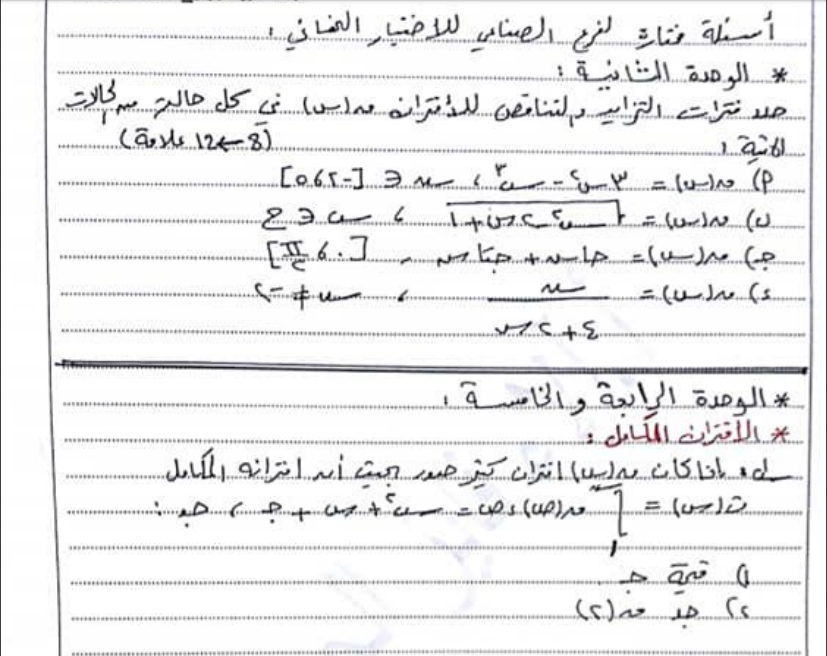 أسئلة مختارة لفرع الصناعي للاختبار النهائي :
* الوحدة الثانية :
حدد فترات التزايد والتناقص للاقتران ق(س) في كل حالة من الحالات
الآتية : (8 ← 12 علامة)
أ) ق(س) = ٣س٢ - س٣ ، س ∈ [-٢، ٥]
ب) ق(س) = √(س٢ - ٢س + ١) ، س ∈ ح
جـ) ق(س) = جاس + جتاس ، [٠ ، π/٢]
د) ق(س) = س / (٤ + ٢س) ، س ≠ -٢
* الوحدة الرابعة والخامسة :
* الاقتران المكامل :
س١: إذا كان ق(س) اقتران كثير حدود بحيث أن اقترانه المكامل
ت(س) = ∫١س ق(ص) ءص = س٢ + س + جـ ، جد :
١) قيمة جـ
٢) جد ق(٢)